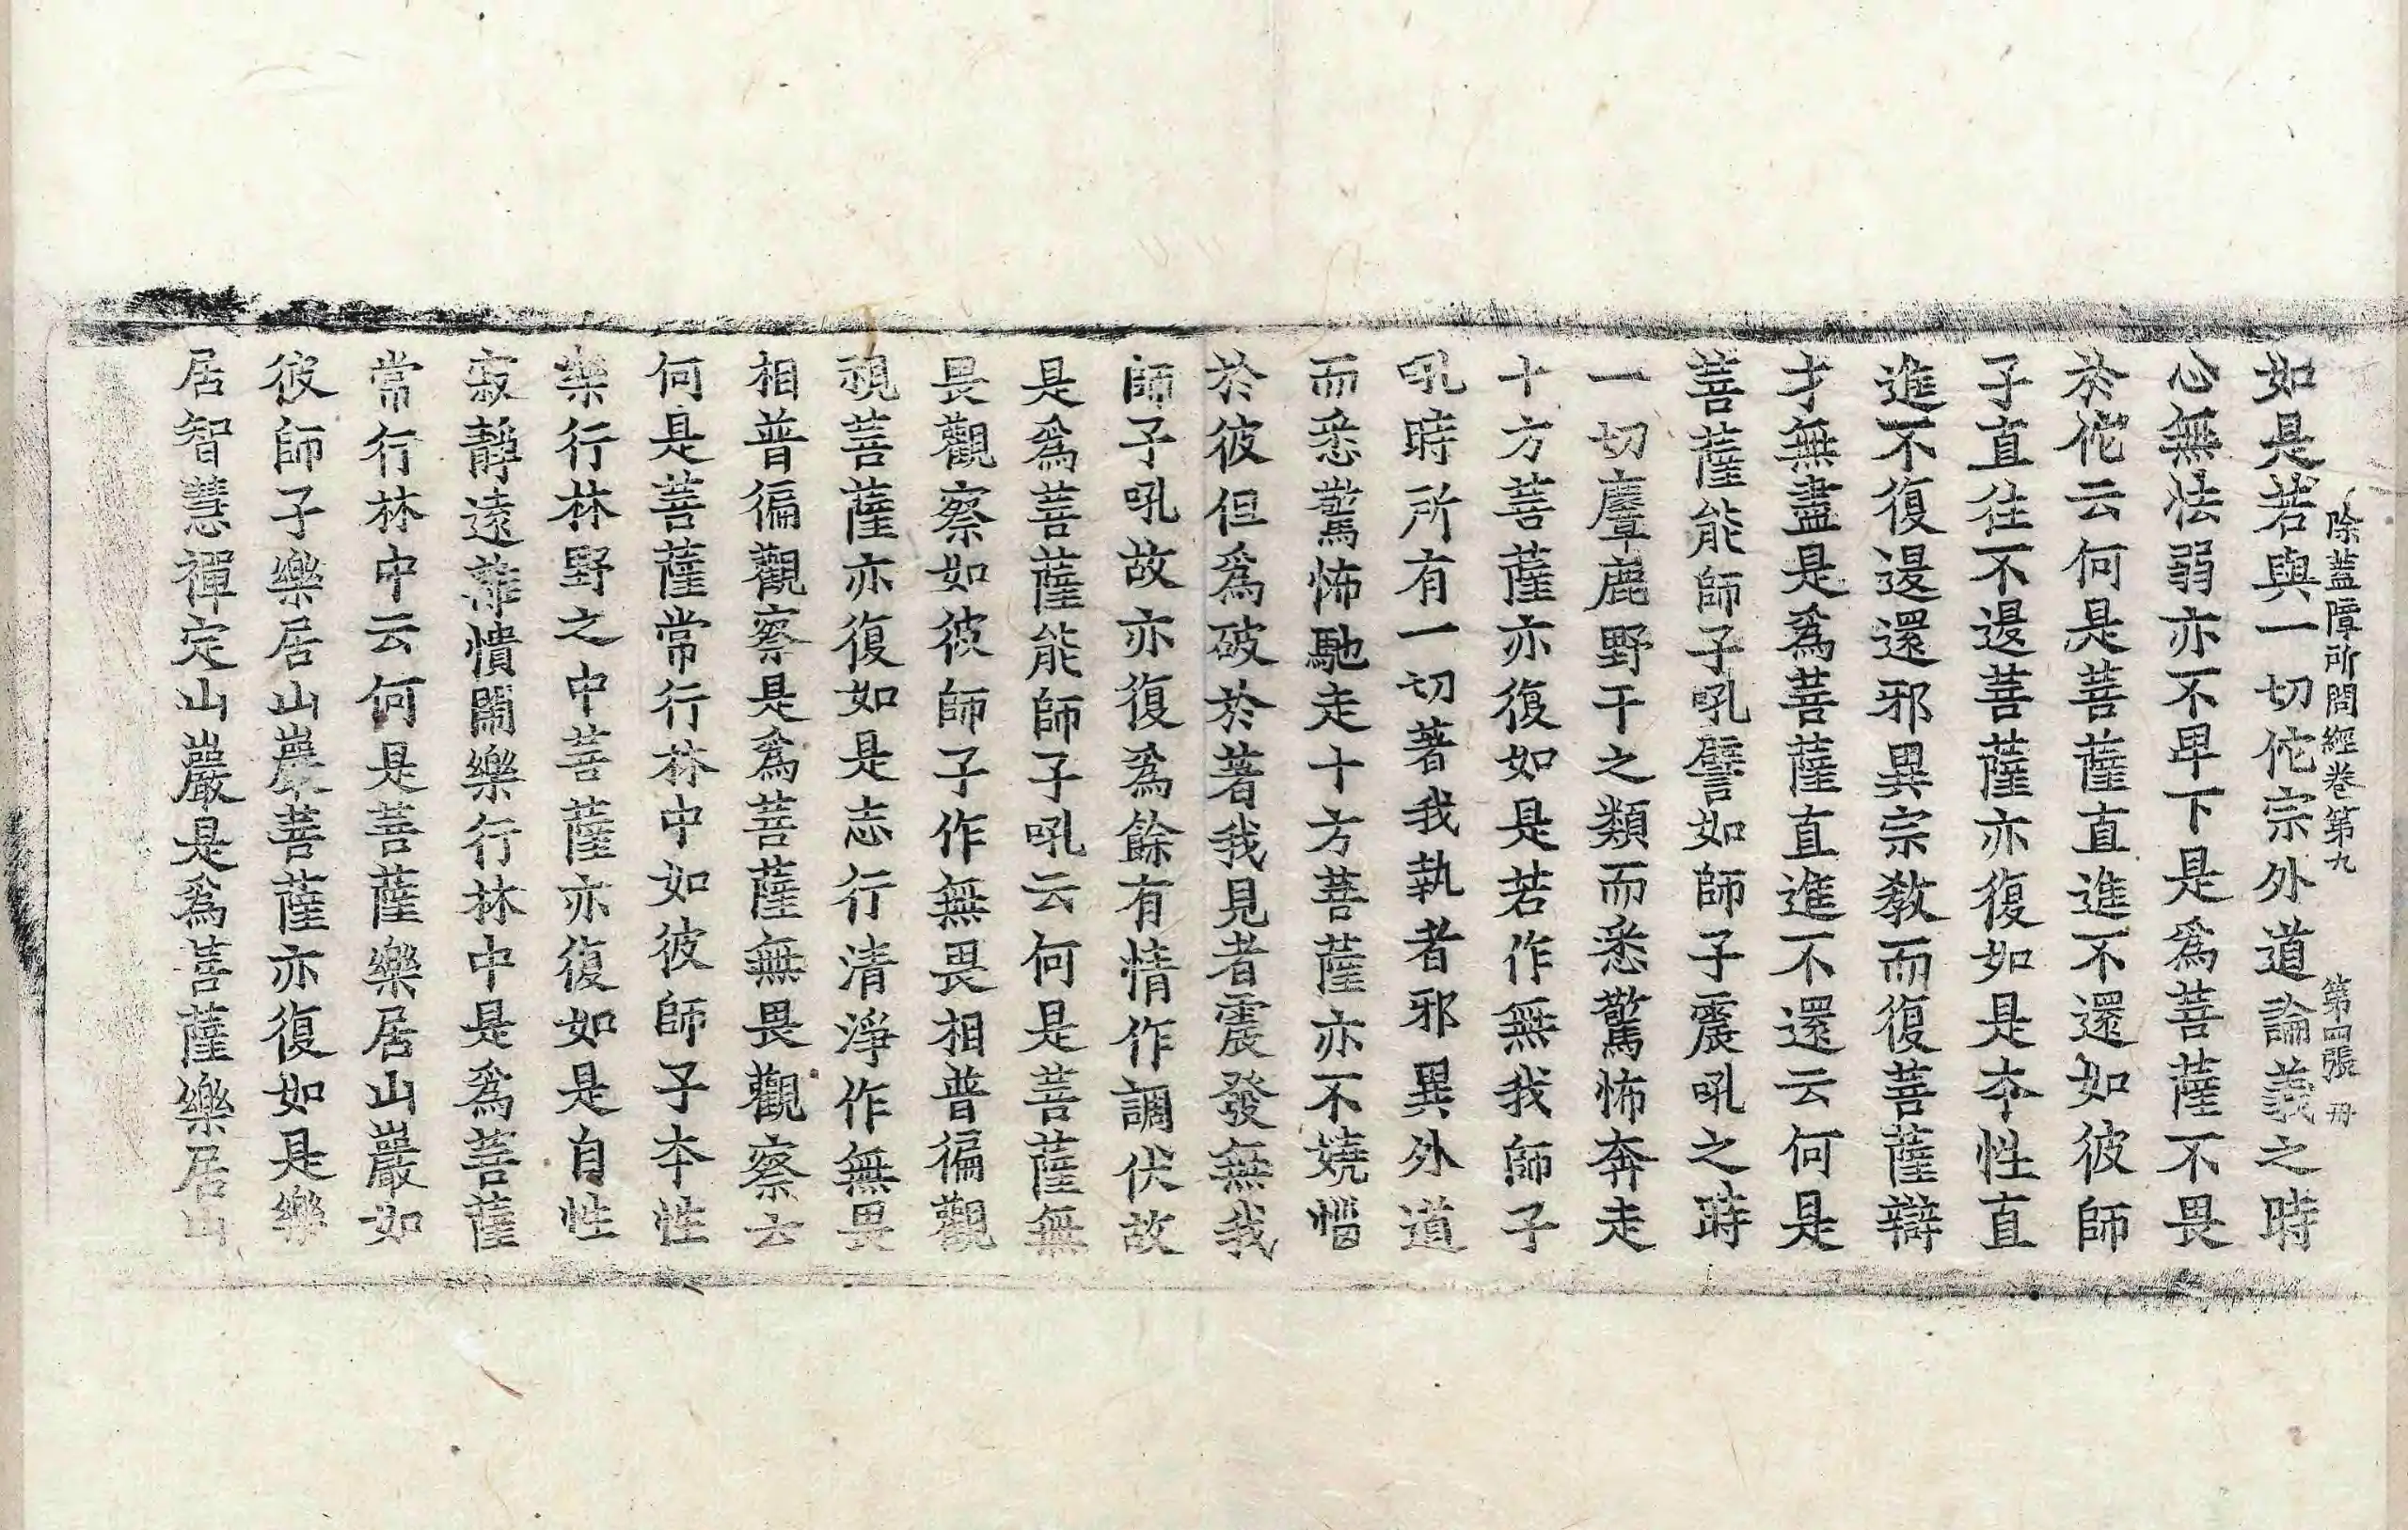 除蓋障所問經卷第九 第四張 冊
如是若與一切佗宗外道論義之時
心無怯弱亦不卑下是爲菩薩不畏
於佗云何是菩薩直進不還如彼師
子直往不退菩薩亦復如是本性直
進不復退還邪異宗教而復菩薩辯
才無盡是爲菩薩直進不還云何是
菩薩能師子吼譬如師子震吼之時
一切麞鹿野干之類而悉驚怖奔走
十方菩薩亦復如是若作無我師子
吼時所有一切著我執者邪異外道
而悉驚怖馳走十方菩薩亦不嬈惱
於彼但爲破於著我見者震發無我
師子吼故亦復爲餘有情作調伏故
是爲菩薩能師子吼云何是菩薩無
畏觀察如彼師子作無畏相普徧觀
視菩薩亦復如是志行清淨作無畏
相普徧觀察是爲菩薩無畏觀察云
何是菩薩常行林中如彼師子本性
樂行林野之中菩薩亦復如是自性
寂靜遠離憒閙樂行林中是爲菩薩
常行林中云何是菩薩樂居山巖如
彼師子樂居山巖菩薩亦復如是樂
居智慧禪定山巖是爲菩薩樂居山